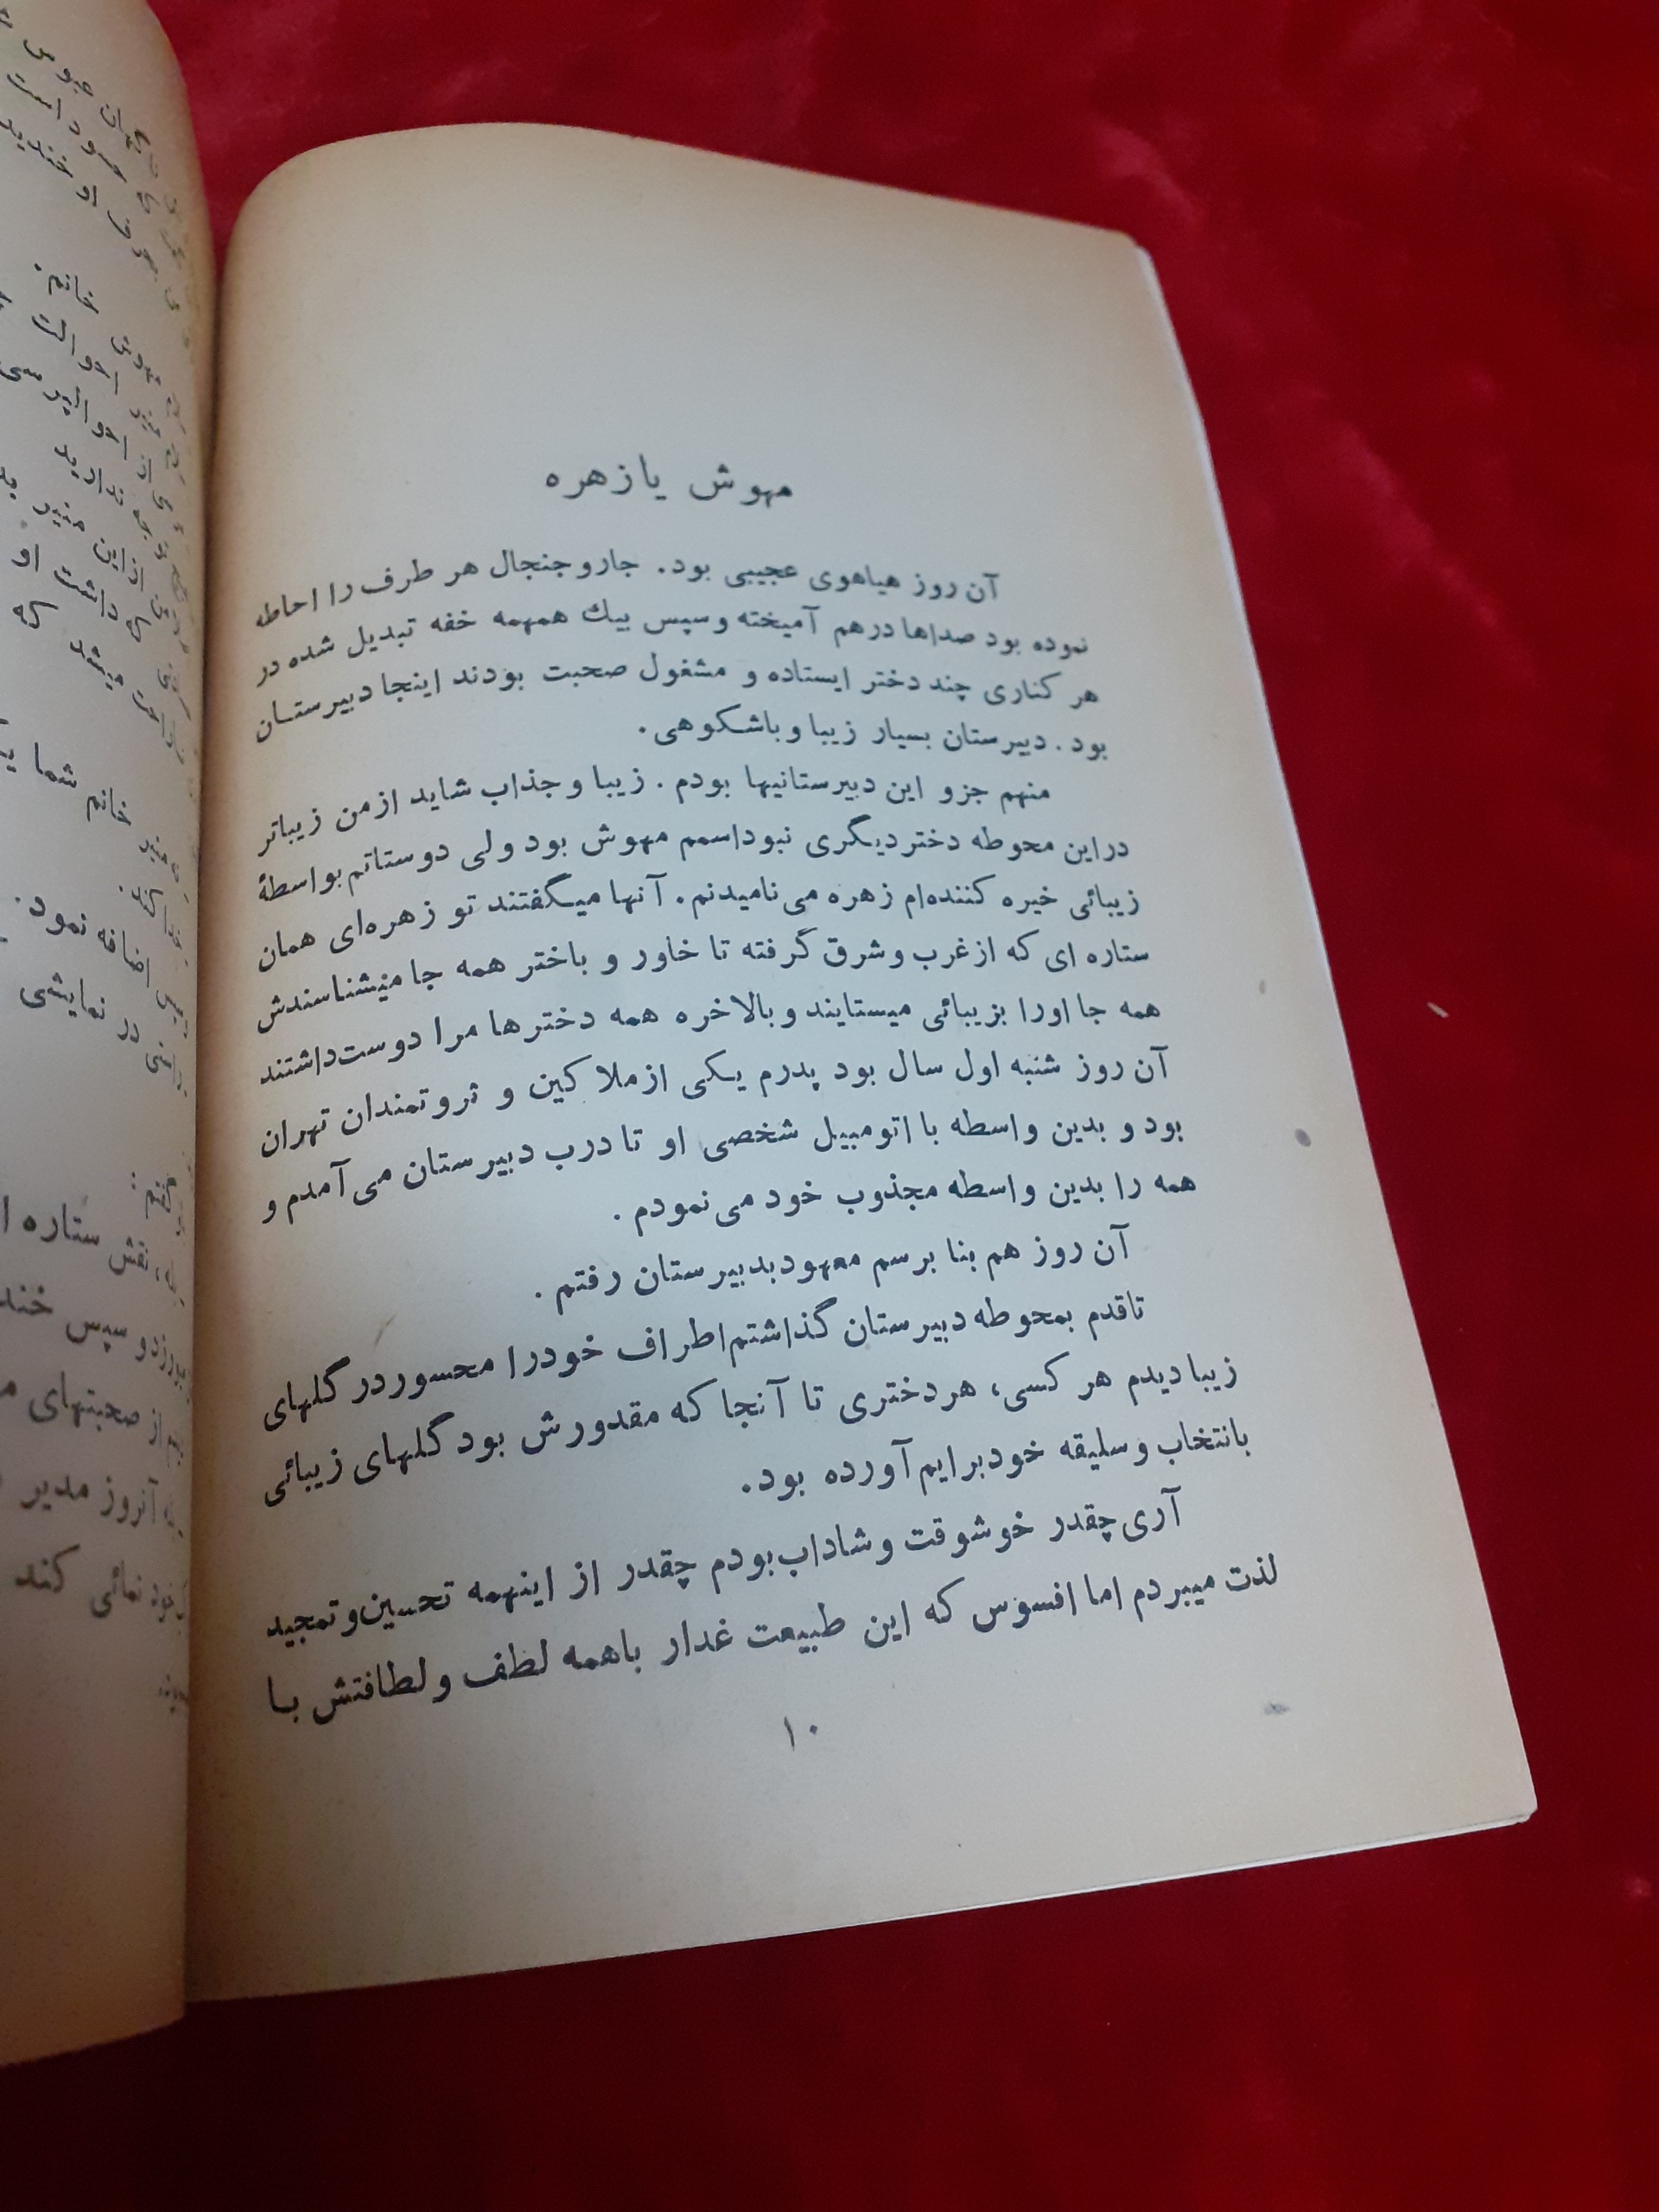 مهوش یا زهره
آن روز هیاهوی عجیبی بود. جار و جنجال هر طرف را احاطه
نموده بود صداها درهم آمیخته و سپس بیك همهمه خفه تبدیل شده در
هر کناری چند دختر ایستاده و مشغول صحبت بودند اینجا دبیرستان
بود. دبیرستان بسیار زیبا و باشکوهی.
منهم جزو این دبیرستانیها بودم. زیبا و جذاب شاید از من زیباتر
در این محوطه دختر دیگری نبود اسمم مهوش بود ولی دوستانم بواسطهٔ
زیبائی خیره کننده‌ام زهره می‌نامیدنم. آنها میگفتند تو زهره‌ای همان
ستاره ای که از غرب و شرق گرفته تا خاور و باختر همه جا میشناسندش
همه جا اورا بزیبائی میستایند و بالاخره همه دخترها مرا دوست داشتند
آن روز شنبه اول سال بود پدرم یکی از ملاکین و ثروتمندان تهران
بود و بدین واسطه با اتومبیل شخصی او تا درب دبیرستان می‌آمدم و
همه را بدین واسطه مجذوب خود می‌نمودم.
آن روز هم بنا برسم معهود بدبیرستان رفتم.
تا قدم بمحوطه دبیرستان گذاشتم اطراف خودرا محسور در گلهای
زیبا دیدم هر کسی، هر دختری تا آنجا که مقدورش بود گلهای زیبائی
بانتخاب و سلیقه خود برایم آورده بود.
آری چقدر خوشوقت و شاداب بودم چقدر از اینهمه تحسین و تمجید
لذت میبردم اما افسوس که این طبیعت غدار باهمه لطف و لطافتش با
۱۰
خانم.
خانم شما
اضافه نمود.
در نمایشی
نقش ستاره
و سپس خند
از صحبتهای
آنروز مدیر
خود نمائی کند